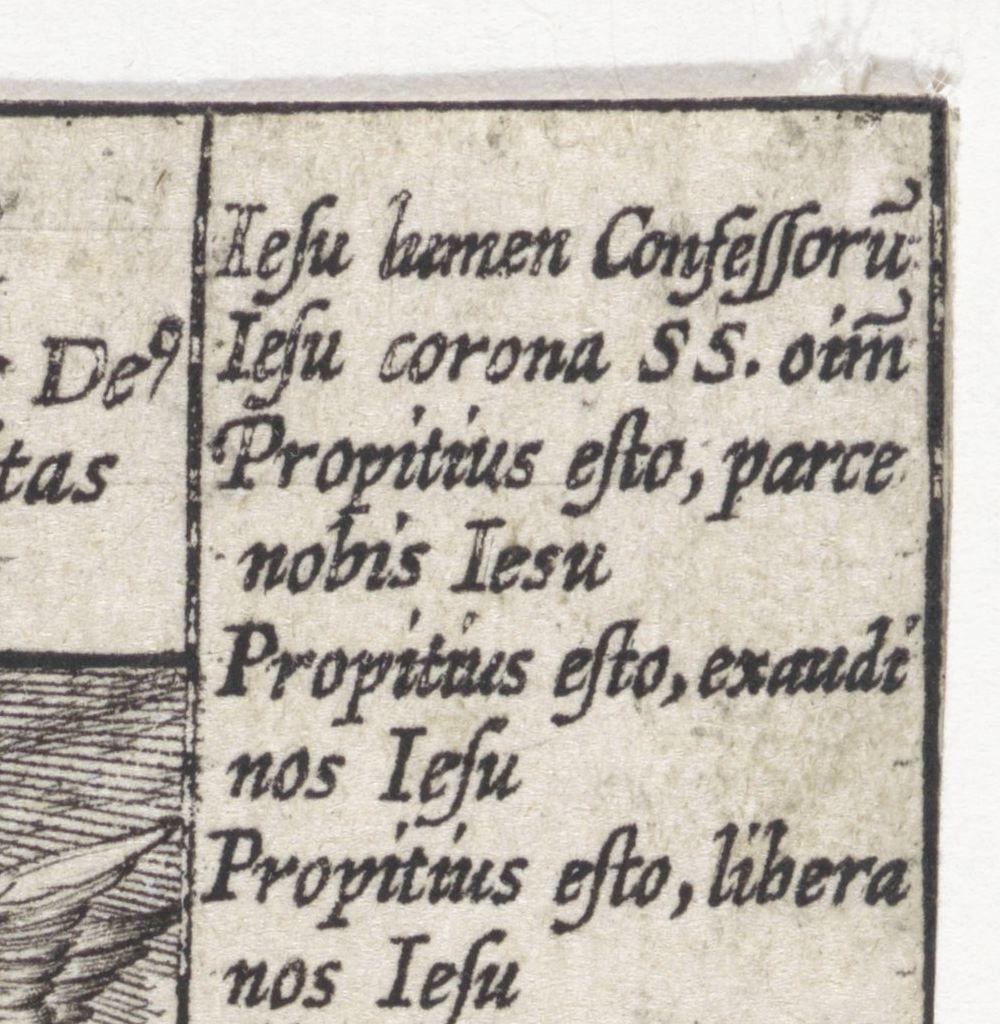 Deꝰ
tas
Ieſu lumen Confeſſorũ
Ieſu corona SS. oim̃
Propitius eſto, parce
nobis Iesu
Propitius eſto, exaudi
nos Ieſu
Propitius eſto, libera
nos Ieſu